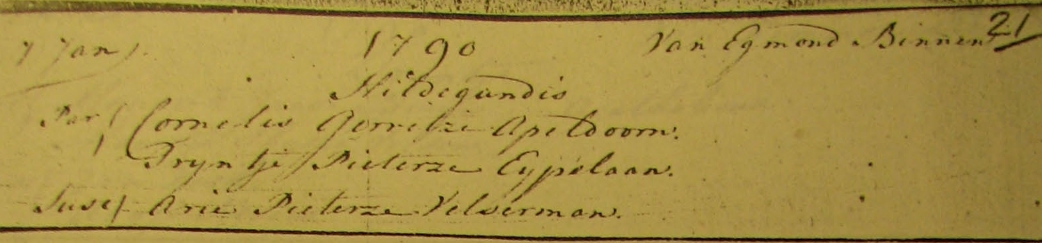 7 Jan. 1790 Van Egmond Binnen 21
Hildegundis
Par Cornelis Gerretze Apeldoorn.
Tryntje Pieterze Eypelaan.
Susc Arie Pieterze Velserman.